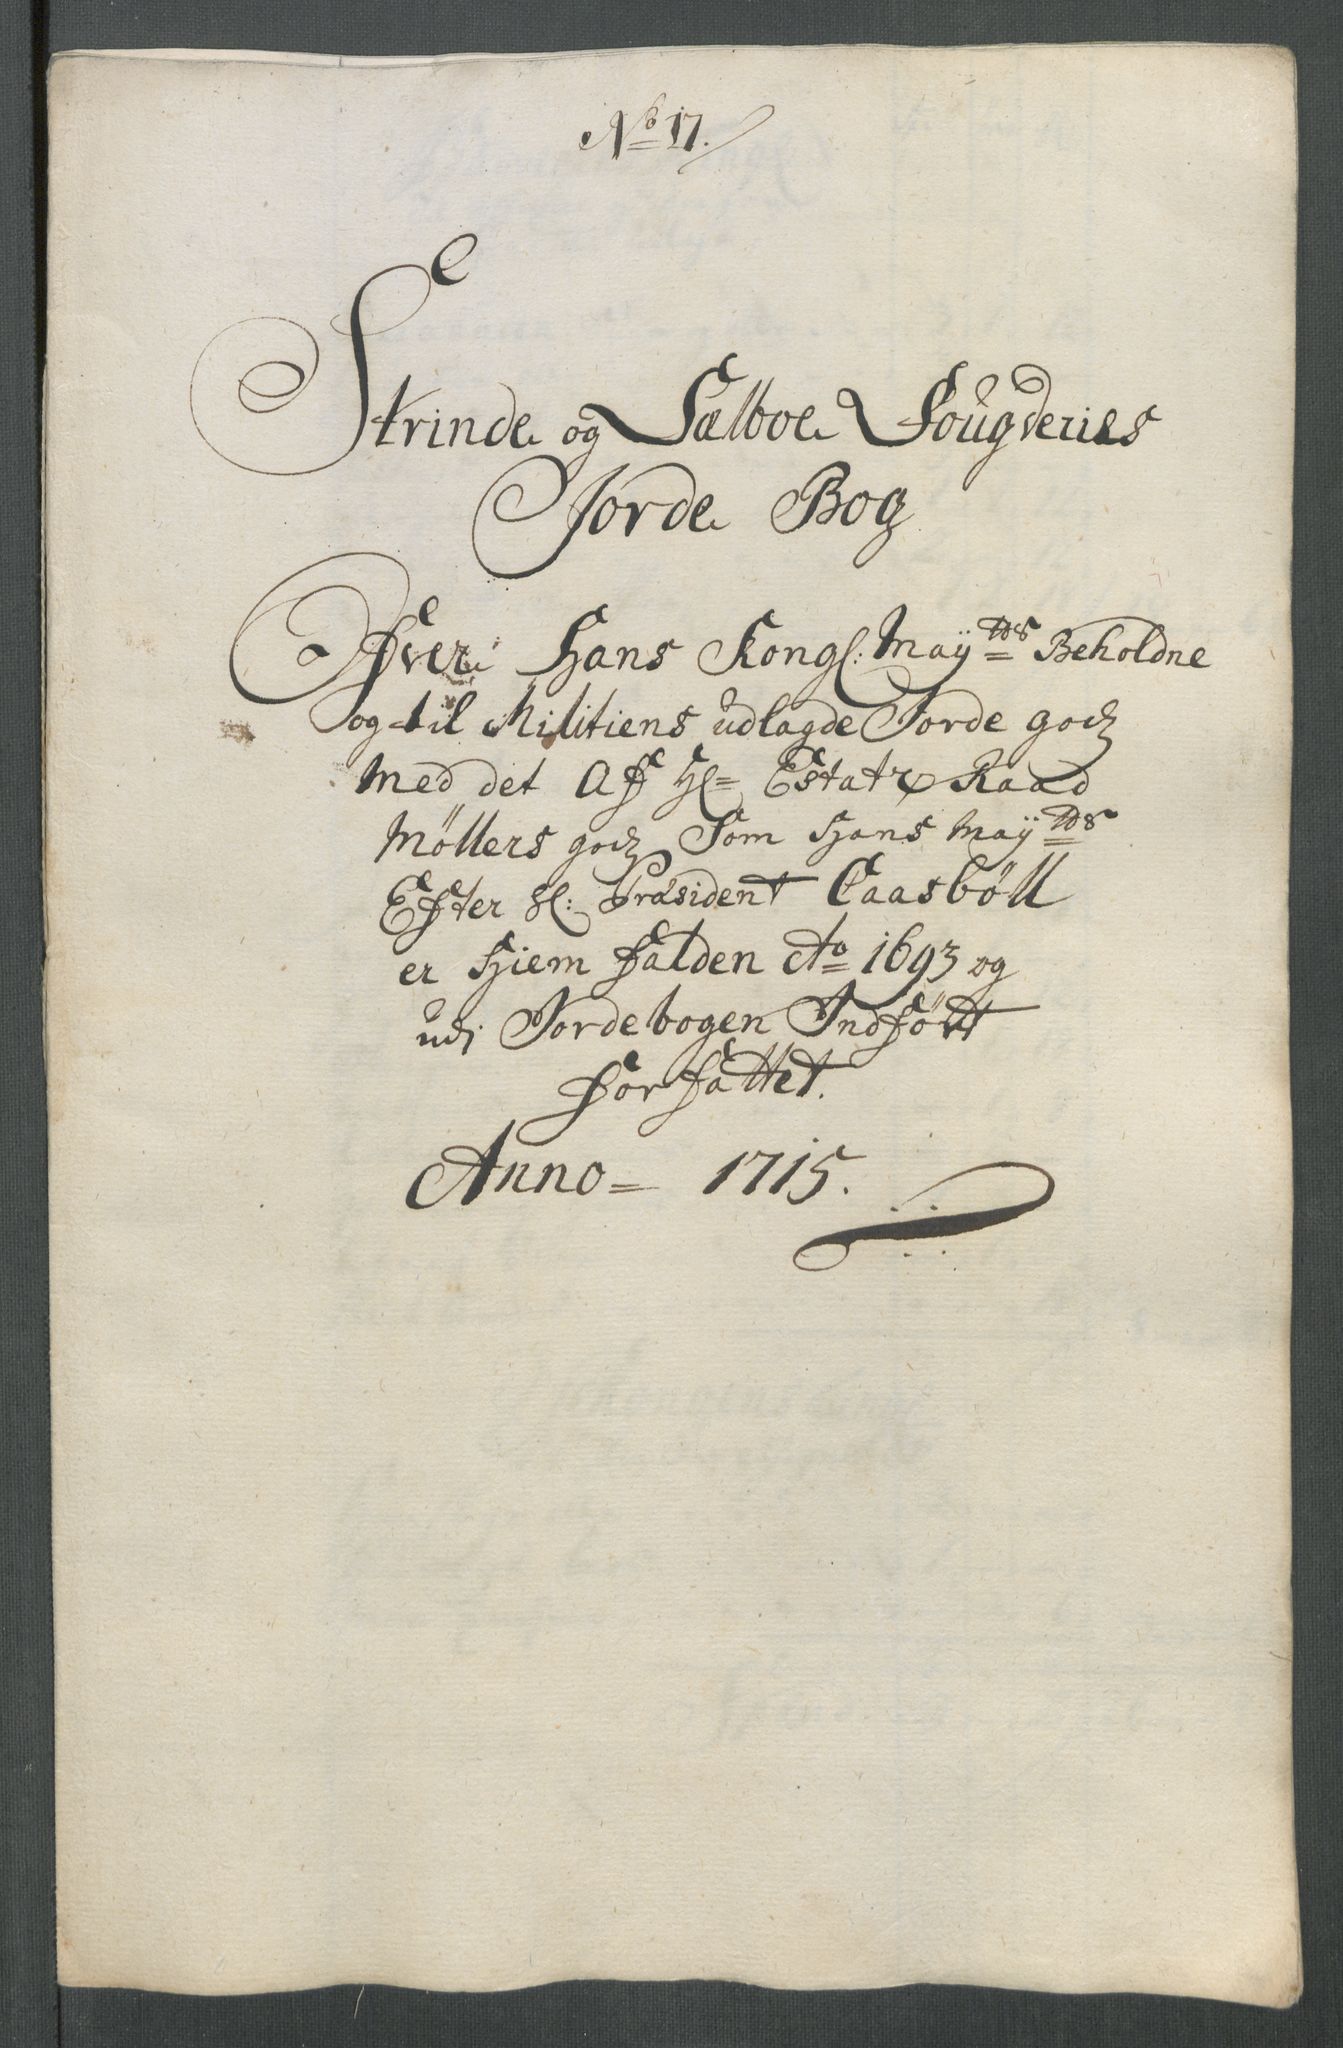 No 17.
Strinde og Sælboe Fougderies
Jorde Bog
Ofver Hans Kongl: Maÿtts Beholdne
og til Militiens udlagde Jorde godz
Med det Af Hl= Estatz Raad
Møllers godz Som Hans Maÿtts
Efter Sl: Præsident Caasbøll
er Hiem falden Ao 1693 og
udj Jordebogen Indført
forfattet.
Anno= 1715.